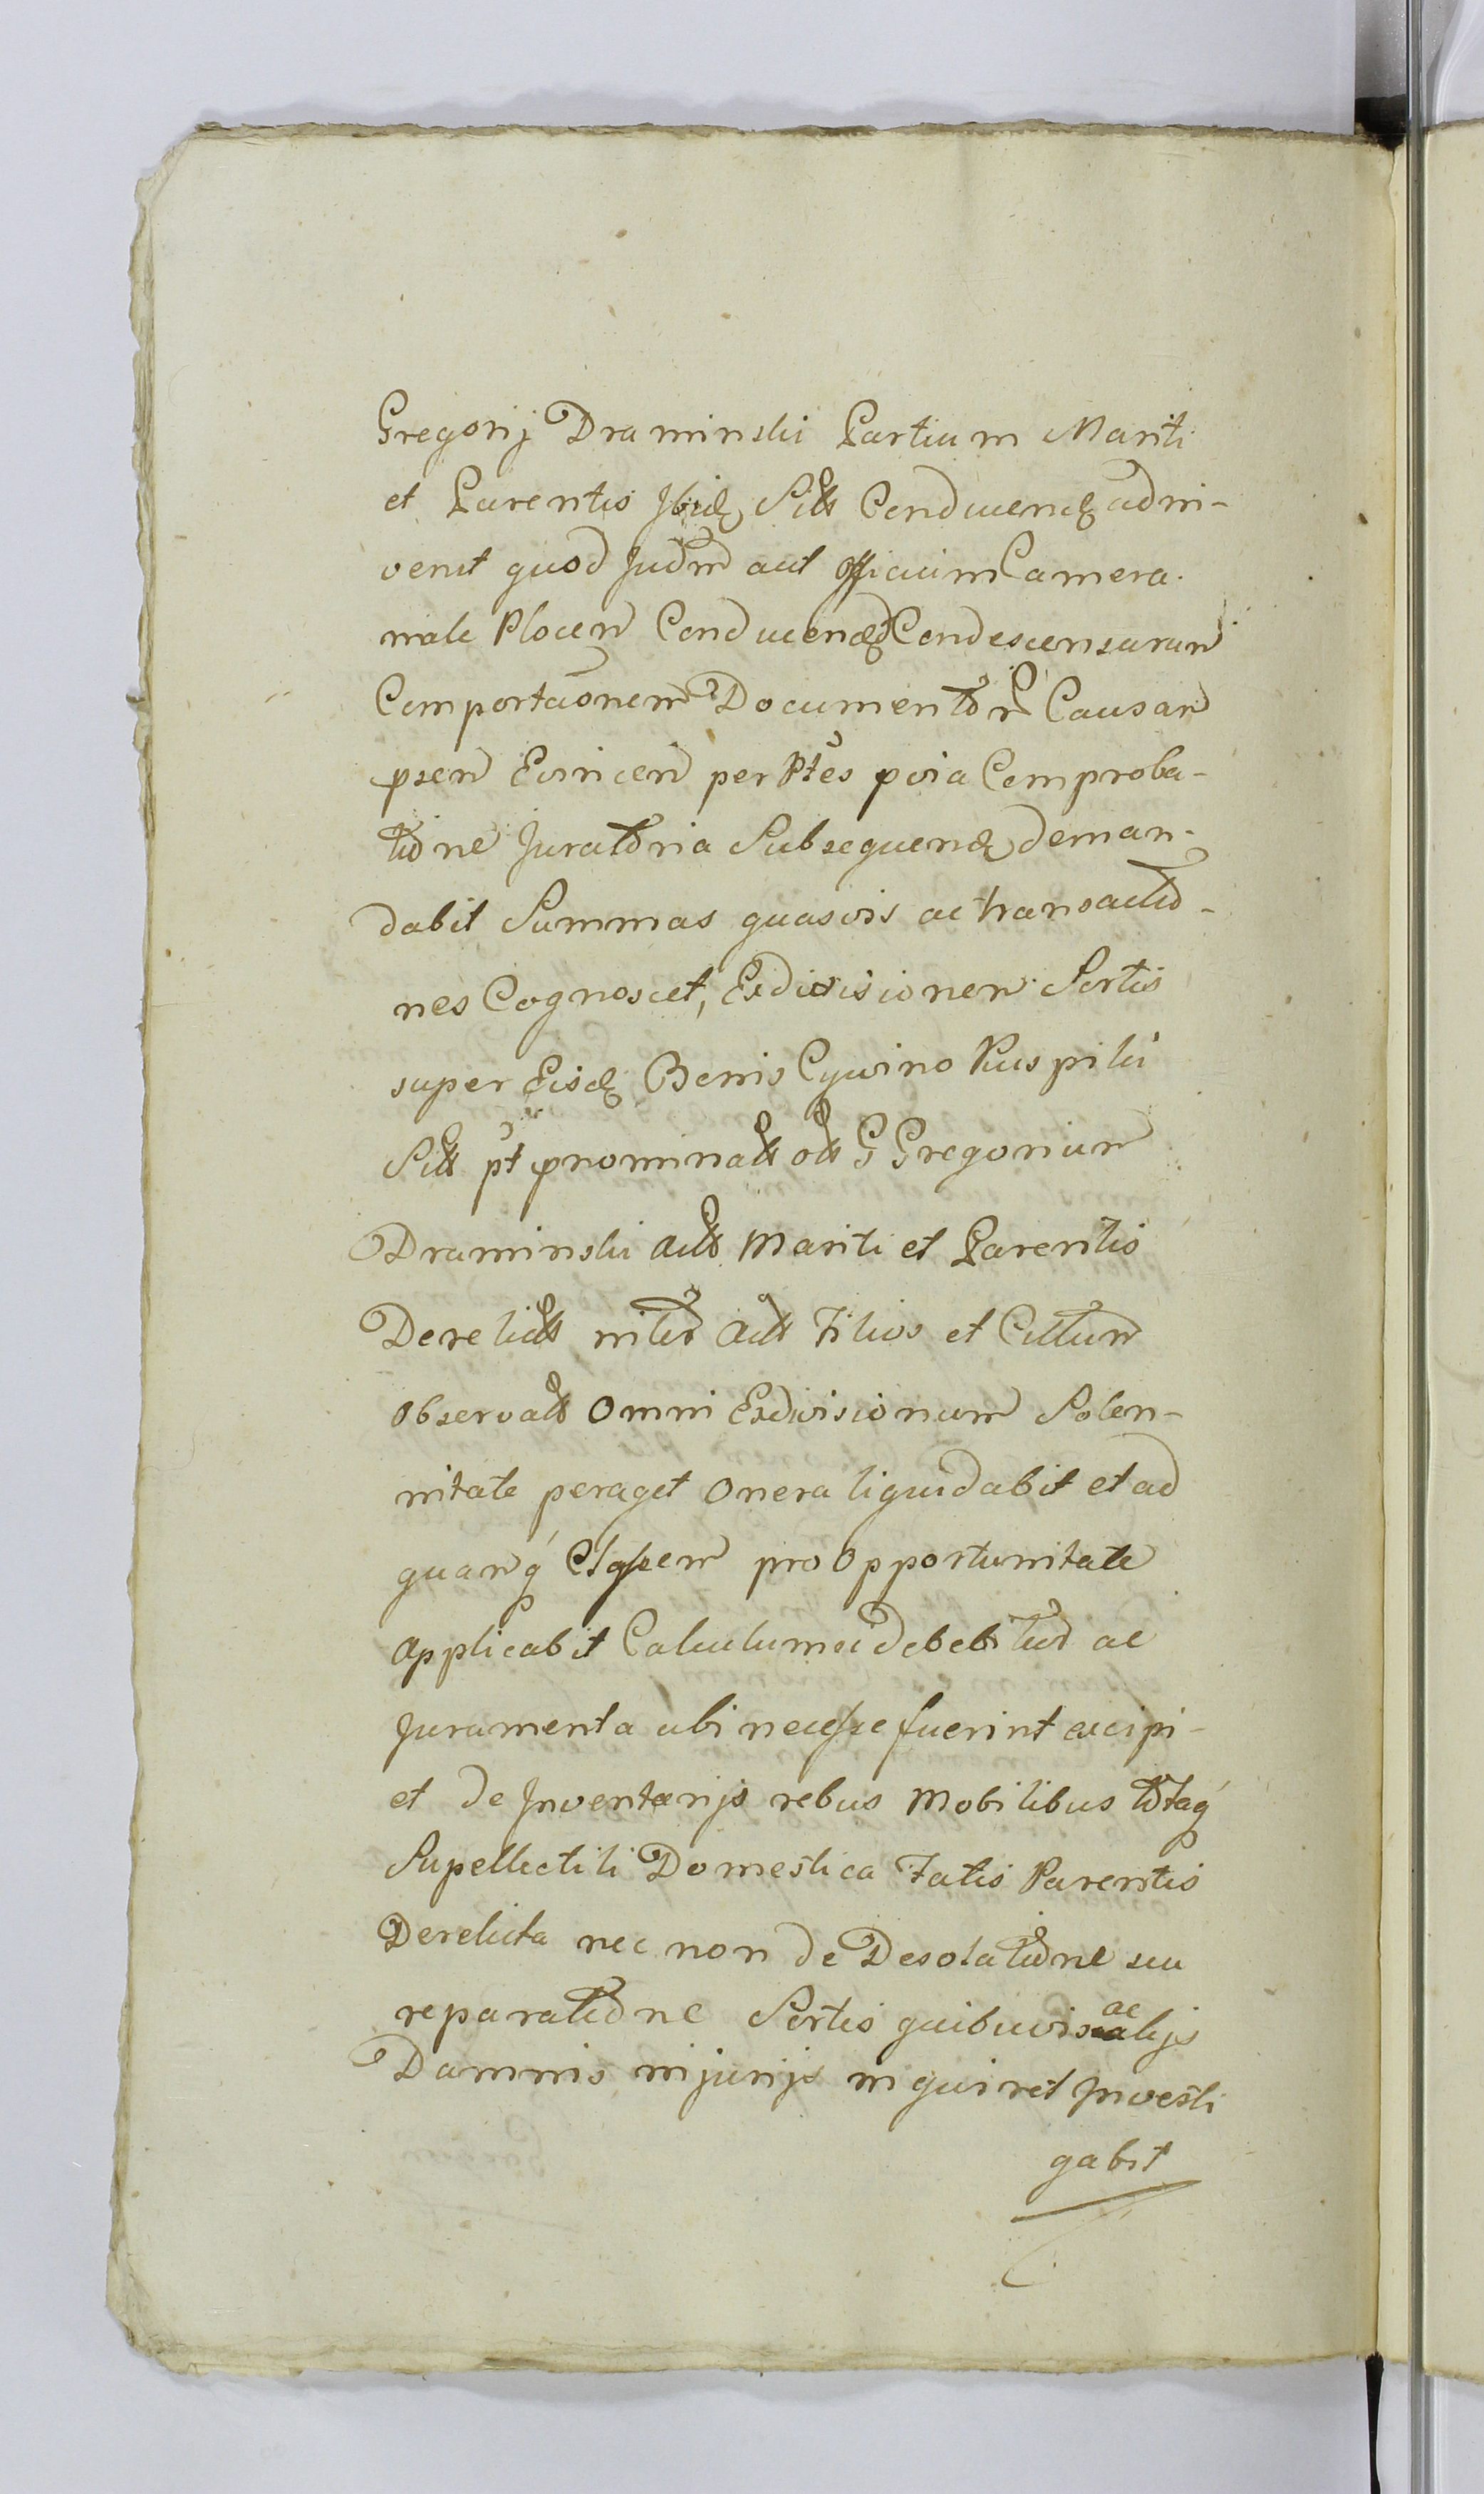 Gregorij Draminski Partium Mariti
et Parentis Ibid Sitt Conducend adni-
venit quod Judm aut officium Camera.
male Plocen Conducend Condescensuram
Comportaonem Documentor Causam
psen Evincen per Ptes pvia Comproba-
tione Juratoria Subsequend deman-
dabit Summas quasvis ac transactio-
nes Cognoscet, Exdivisionem Sortis
super Eisd Bonis Cywino Ruspilii
Sitt pt pnominatt ott G Gregorium
Draminski Mariti et Parentis
Derelictt inter Filios et
observatt omni Exdivisionum Solen-
nitate peraget onera liquidabit et ad
quamq pro Opportunitate
applicabit Calculum ei debebitur ac
Juramenta ubi necesse fuerint excipi-
et de Inventarijs rebus Mobilibus totaq
Supellectili Domestica Fatis Parentis
Derelicta nec non de Desolatione seu
reparatione Sortis quibusvis ac alijs
Damnis injurijs inquiret Investi
gabit